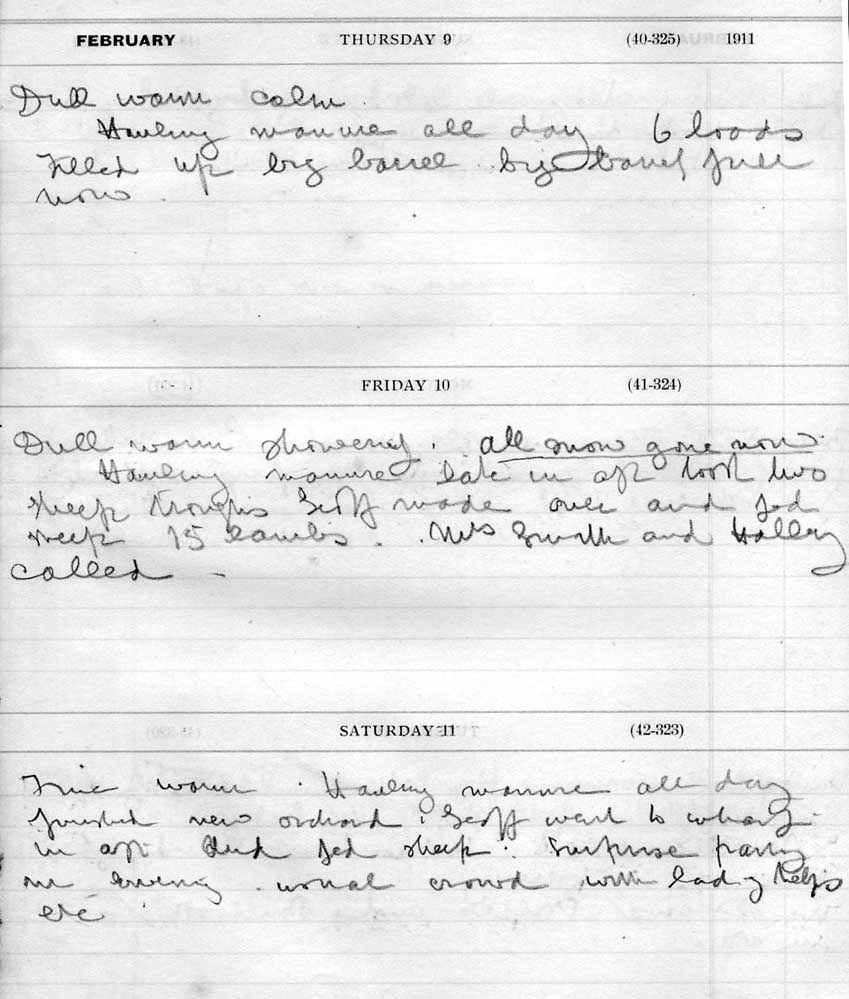 FEBRUARY THURSDAY 9 (40-325) 1911
Dull warm calm.
Hauling manure all day 6 loads
Filled up big barrel. big barrel full
now.
FRIDAY 10 (41-324)
Dull warm showery. all snow gone now.
Hauling manure late in aft took two
sheep troughs Geoff made over and fed
sheep 15 lambs. Mrs Smith and
called -
SATURDAY 11 (42-323)
Fine warm. Hauling manure all day
finished new orchard. Geoff went to wharf
in aft and fed sheep. Surprise party
in evening. usual crowd with lady helps
etc